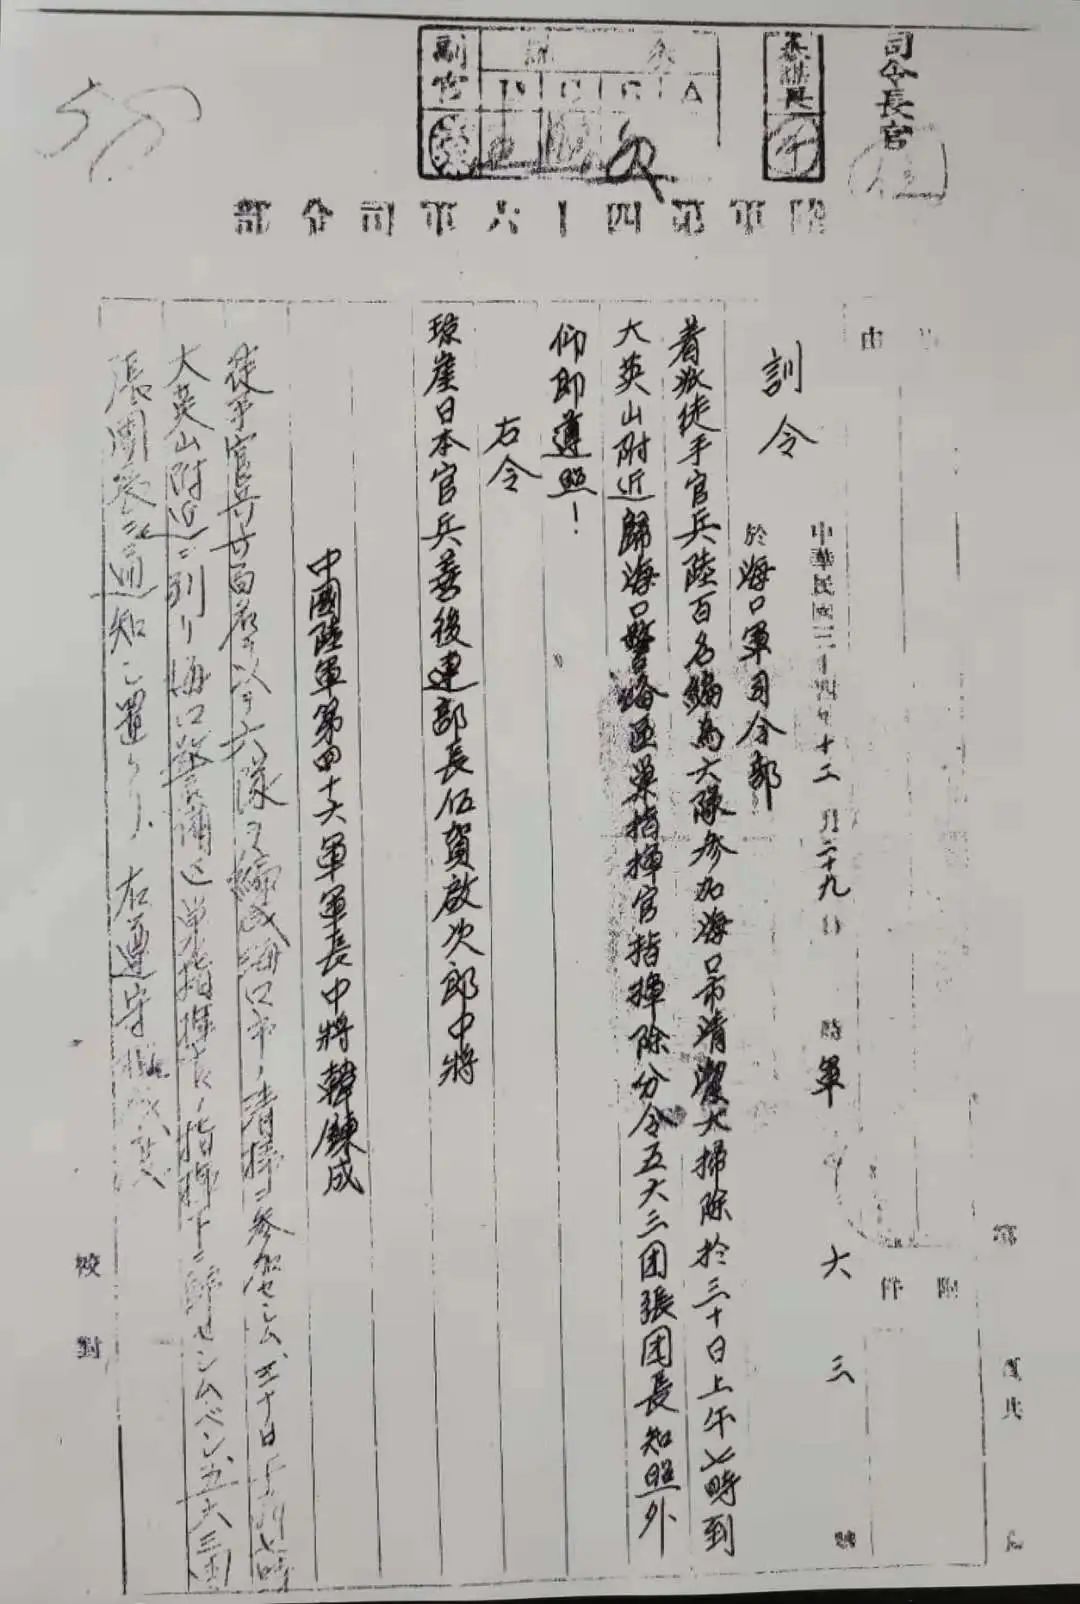 司令長官
參謀長
參謀
A
副官
陸軍第四十六軍司令部
由
附
件
訓令
中華民國三十四年十二月二十九日
時
軍
六
三
號
於海口軍司令部
着派徒手官兵陸百名編為六隊參加海口市清潔大掃除於三十日上午七時到
大英山附近歸海口警備區單指揮官指揮除分令五六三团張团長知照外
仰即遵照！
右令
琼崖日本官兵善後連部長伍賀啟次郎中將
中國陸軍第四十六軍軍長中將韓鍊成
徒手官兵 百名ヲ以テ六隊ヲ編成海口市ノ清掃ニ参加セシム、三十日午前七時
大英山附近ニ到リ海口警備区単指揮官ノ指揮下ニ帰セシムベシ、五六三団
張團長ニ通知シ置ケリ、右遵守
校對